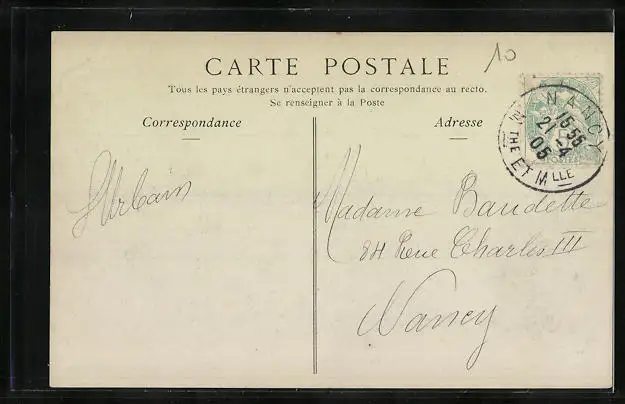 10
CARTE POSTALE
Tous les pays étrangers n'acceptent pas la correspondance au recto.
Se renseigner à la Poste
Correspondance
Adresse
NANCY
15·55
21 -4
05
MTHE ET MLLE
POSTES
Madame Baudette
84 Rue Charles III
Nancy